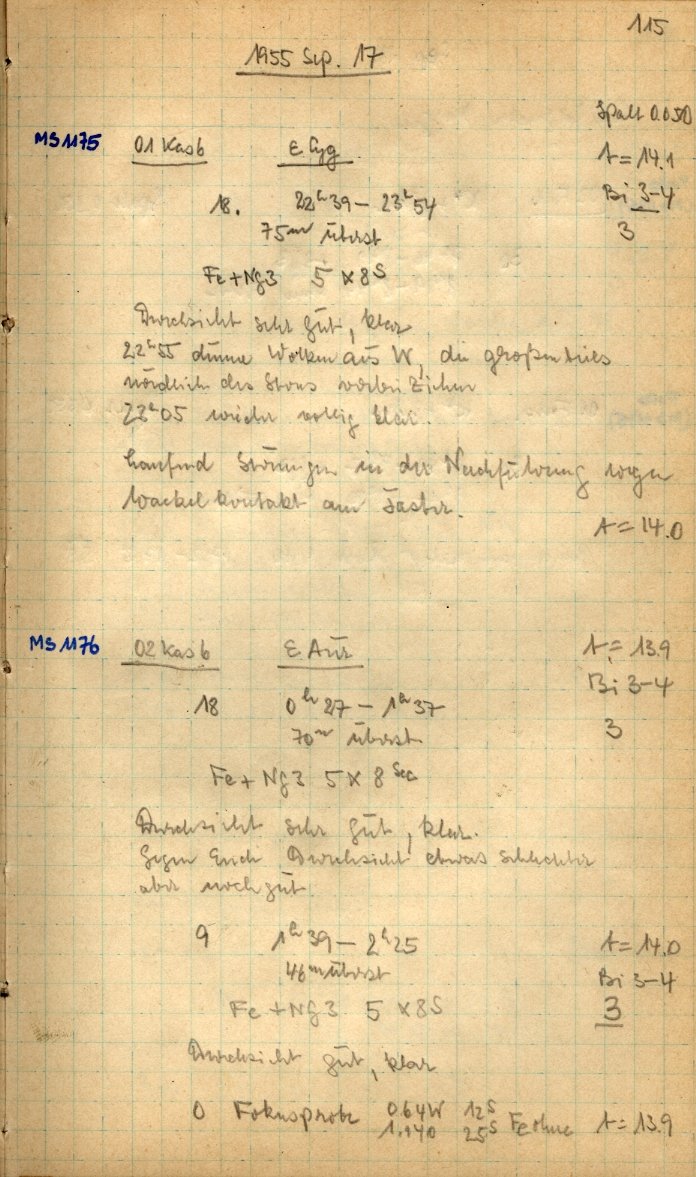 115
1955 Sep. 17
Spalt 0.050
MS 1175 01 Kas b ε Cyg t = 14.1
18. 22h39 – 23h54 Bi 3–4
75m überst 3
Fe + Ng3 5 x 8s
Durchsicht sehr gut, klar
22h55 dünne Wolken aus W, die großenteils
nördlich des Sterns vorbei ziehen
23h05 wieder völlig klar.
laufend Störungen in der Nachführung wegen
Wackelkontakt am Taster.
t = 14.0
MS 1176 02 Kas b ε Aur t = 13.9
Bi 3–4
18 0h27 – 1h37
70m überst 3
Fe + Ng3 5 x 8 Sec
Durchsicht sehr gut, klar.
Gegen Ende Durchsicht etwas schlechter
aber noch gut
9 1h39 – 2h25 t = 14.0
46m überst Bi 3–4
Fe + Ng3 5 x 8s 3
Durchsicht gut, klar
0 Fokusprobe 0.64W 12s
1.140 25s Fe ohne t = 13.9